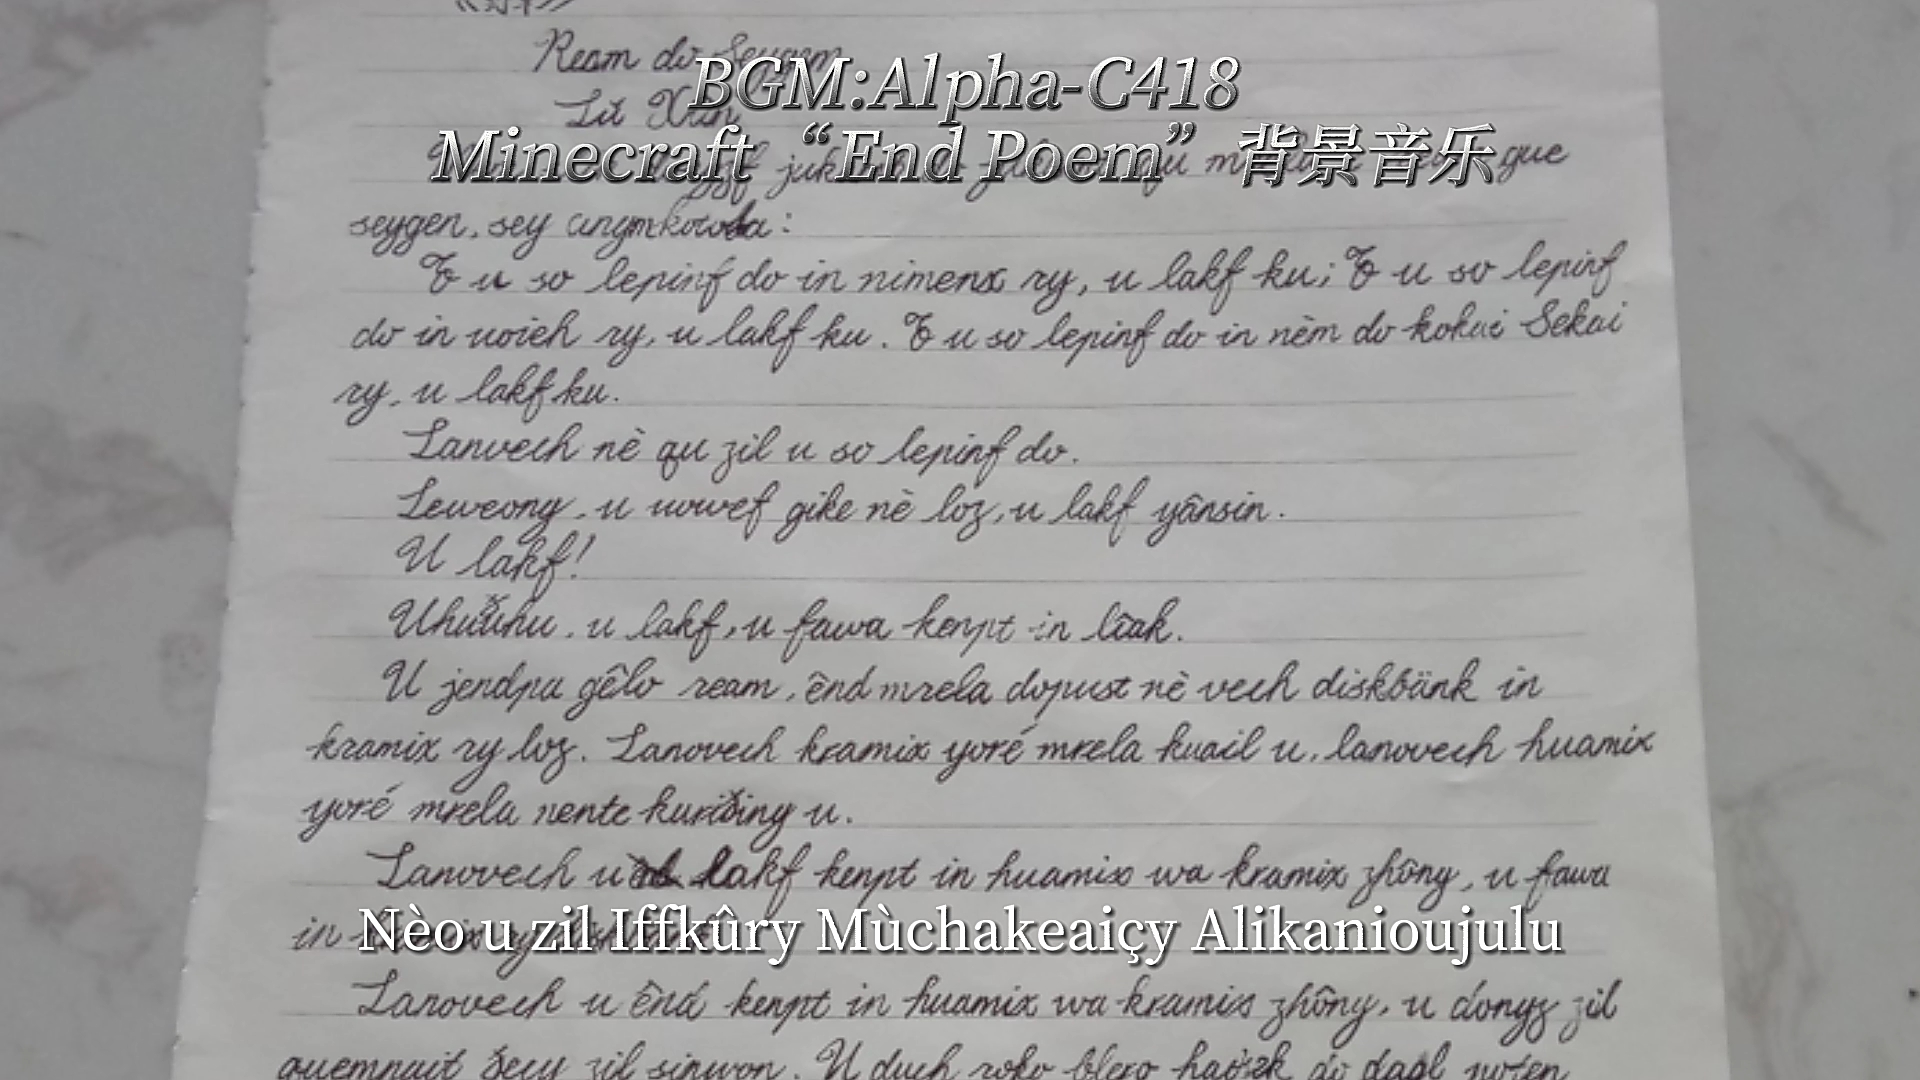 Ream do Seygem
BGM:Alpha-C418
Lü Xun
Minecraft “End Poem” 背景音乐
que
seygen, sey
u so lepinf do in nimenx ry, u lakf ku; u so lepinf
do in uoieh ry, u lakf ku. u so lepinf do in nèm do kokai Sekai
ry, u lakf ku.
Lanvech nè qu zil u so lepinf do.
Leweong, u uowef gike nè loz, u lakf yânsin.
U lakf!
u lakf, u fawa kenpt in lîak.
U jendpa gêlo ream, ênd mrela dopust nè vech diskbänk in
kramix ry loz. Lanovech kramix yoré mrela kuail u, lanovech huamix
yoré mrela nente u.
Lanovech u lakf kenpt in huamix wa kramix zhông, u fawa
in
Nèo u zil Iffkûry Mùchakeaiçy Alikanioujulu
Lanovech u ênd kenpt in huamix wa kramix zhông, u donyz zil
zil sinwon. U duch roko